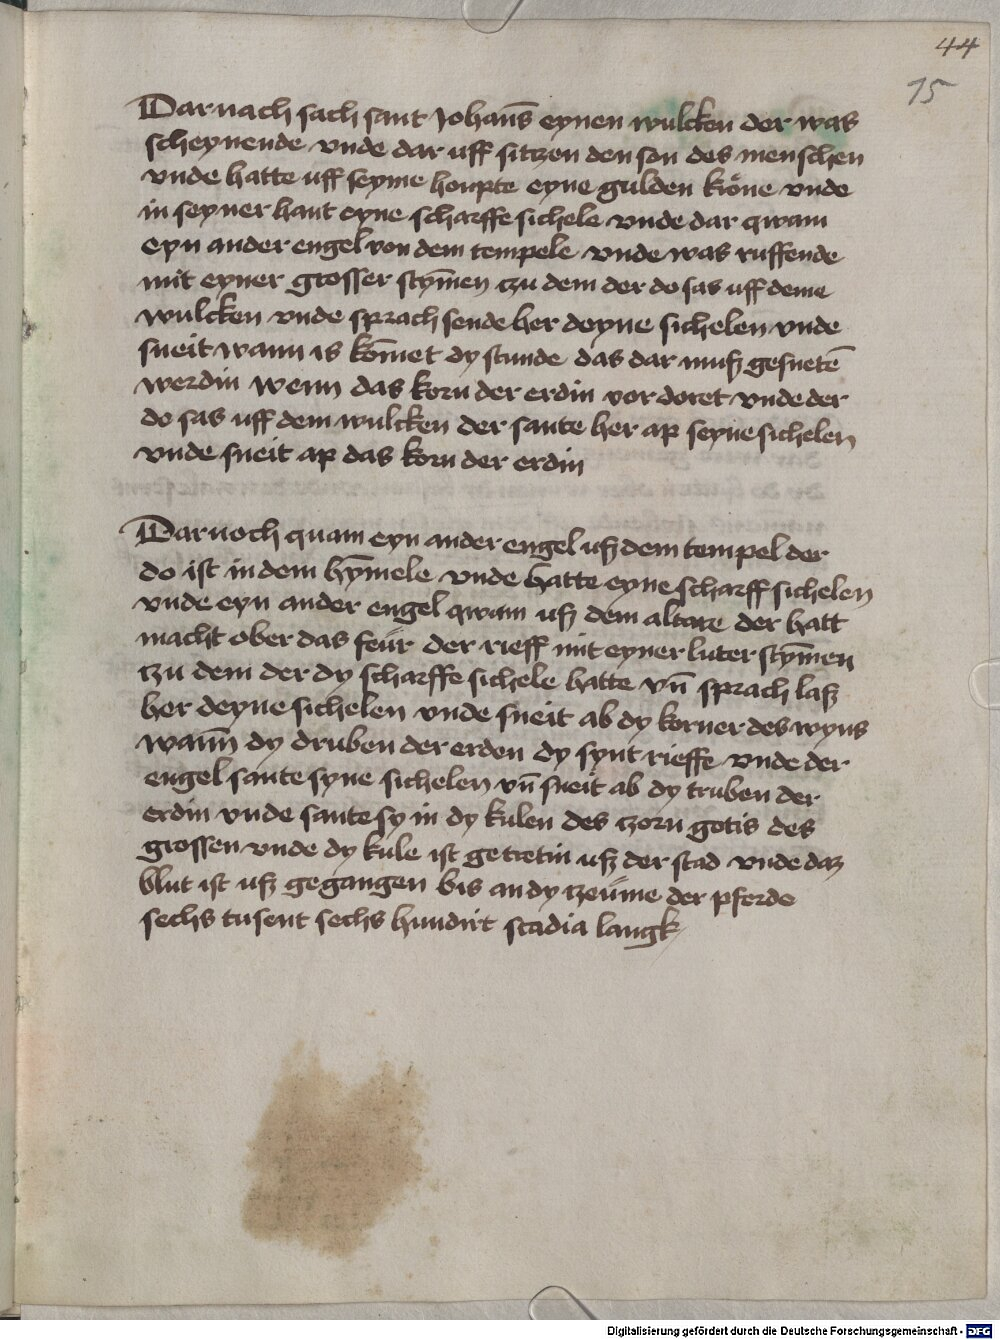 44
15
Darnach sach sant Johanſ̄ eynen wulcken der was
scheynende vnde dar uff sitzen den son des menschen
vnde hatte uff seyme houpte eyne gulden krône vnde
in seyner hant eyne scharffe sichele vnde dar qwam
eyn ander engel von dem tempele vnde was ruffende
mit eyner grosser stȳmen czu dem der do sas uff deme
wulcken vnde sprach sende her deyne sichelen vnde
sneit wann is kōmet dy stunde das dar muß gesnetē
werdin wenn das korn der erdin vordoret vnde der
do sas uff dem wulcken der sante her ap seyne sichelen
vnde sneit ap das korn der erdin
Darnoch quam eyn ander engel uß dem tempel der
do ist in dem hȳmele vnde hatte eyne scharff sichelen
vnde eyn ander engel qwam uß dem altare der hatt
macht ober das feür der rieff mit eyner luter stȳmen
czu dem der dy scharffe sichele hatte vn̄ sprach laß
her deyne sichelen vnde sneit ab dy korner des wyns
wann̄ dy druben der erden dy synt rieffe vnde der
engel sante syne sichelen vn̄ sneit ab dy truben der
erdin vnde sante sy in dy kulen des czorn gotis des
grossen vnde dy kule ist getretin uß der stad vnde daz
blut ist uß gegangen bis an dy czeüme der pferde
sechs tusent sechs hundirt stadia langk
Digitalisierung gefördert durch die Deutsche Forschungsgemeinschaft - DFG